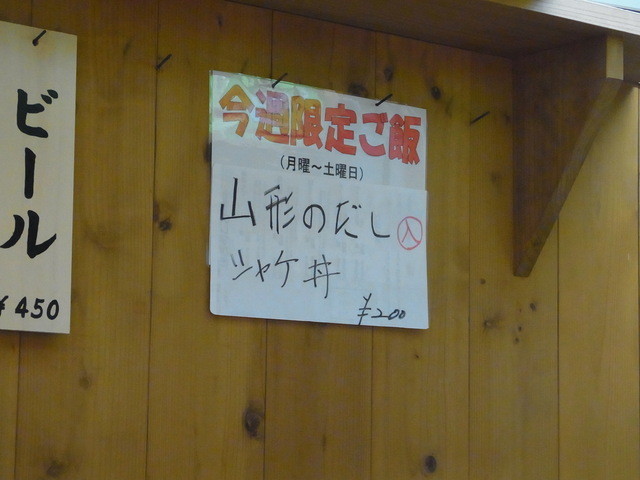 ビール
¥450
今週限定ご飯
（月曜～土曜日）
山形のだし入
シャケ丼
¥200